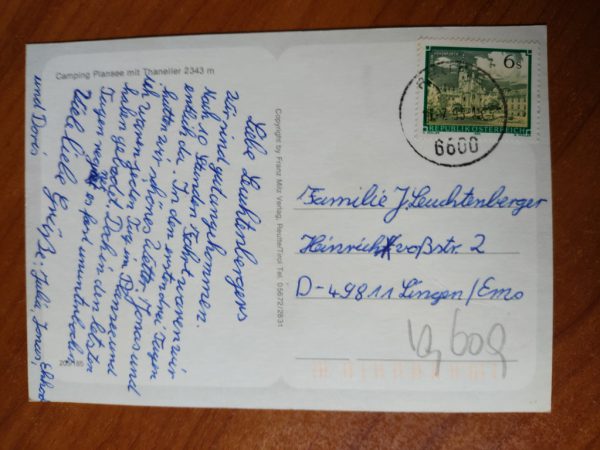 Camping Plansee mit Thaneller 2343 m
Liebe Leuchtenbergers
Wir sind gut angekommen.
Nach 10 Stunden Fahrt waren wir
endlich da. In den ersten drei Tagen
hatten wir schönes Wetter. Jonas und
ich waren jeden Tag im
haben gebadet. Doch in den letzten
Tagen regnet es fast ununterbrochen
Viele liebe Grüße, Julia, Jonas,
und Doris
Copyright by Franz Milz Verlag, Reutte/Tirol Tel. 05672/2831
6 S
REPUBLIK ÖSTERREICH
6600
Familie J. Leuchtenberger
Heinrich voßstr. 2
D-49811 Lingen/Ems